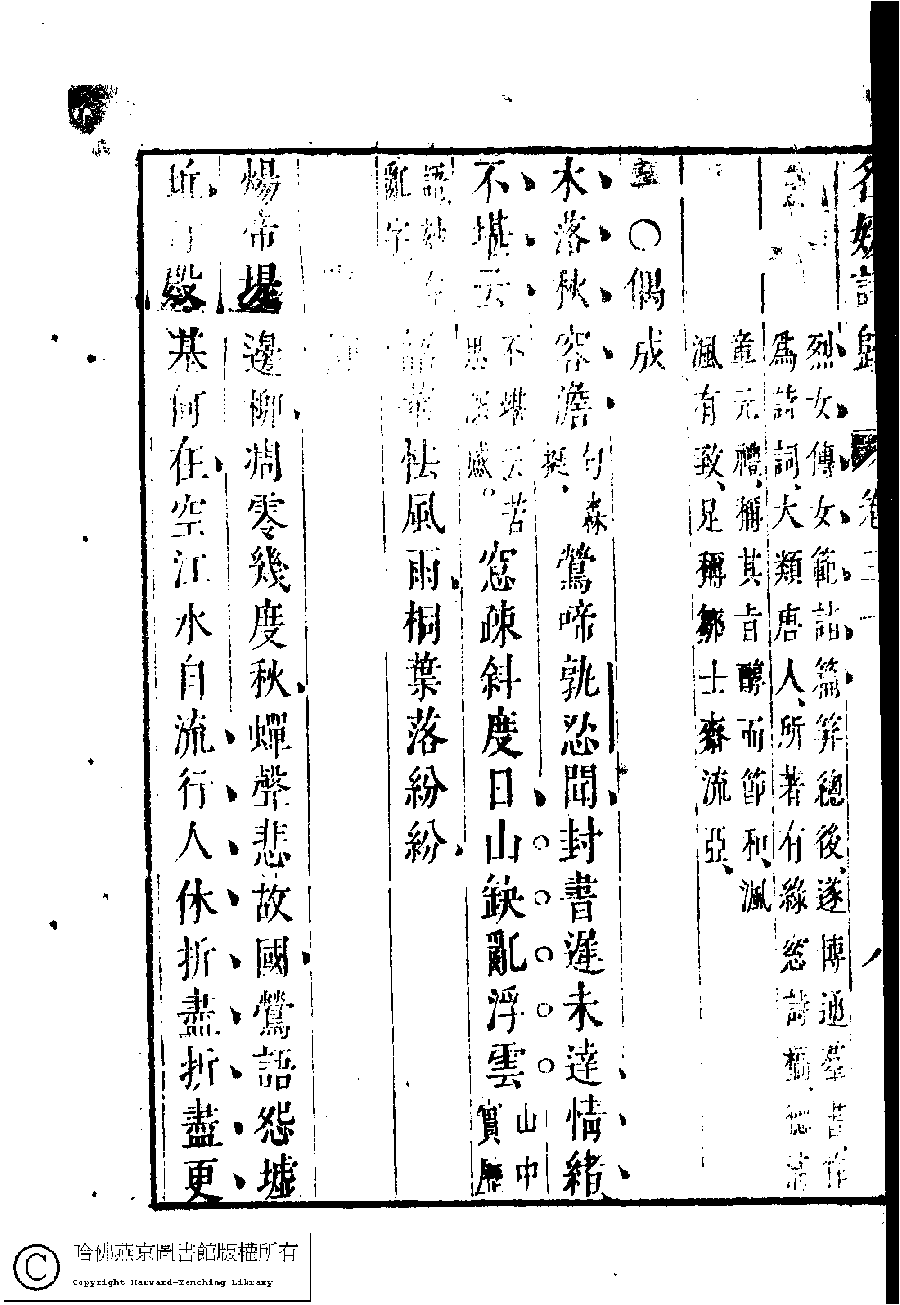 名媛詩歸 卷三
烈女傳女範諸篇笄總後遂博通羣書作
爲詩詞大類唐人所著有綠窓詩稿
童元禮稱其旨醇而節和渢
渢有致足稱鄒士齋流亞
○偶成
水落秋容澹句森挺鶯啼孰忍聞封書遲未達情緒
不堪云不堪云苦思深慼。窓疎斜度日山缺亂浮雲山中實歷
語妙在亂字
韶華怯風雨桐葉落紛紛
煬帝堤邊柳凋零幾度秋蟬聲悲故國鶯語怨墟
基何在空江水自流行人休折盡折盡更
哈佛燕京圖書館版權所有
Copyright Harvard-Yenching Library